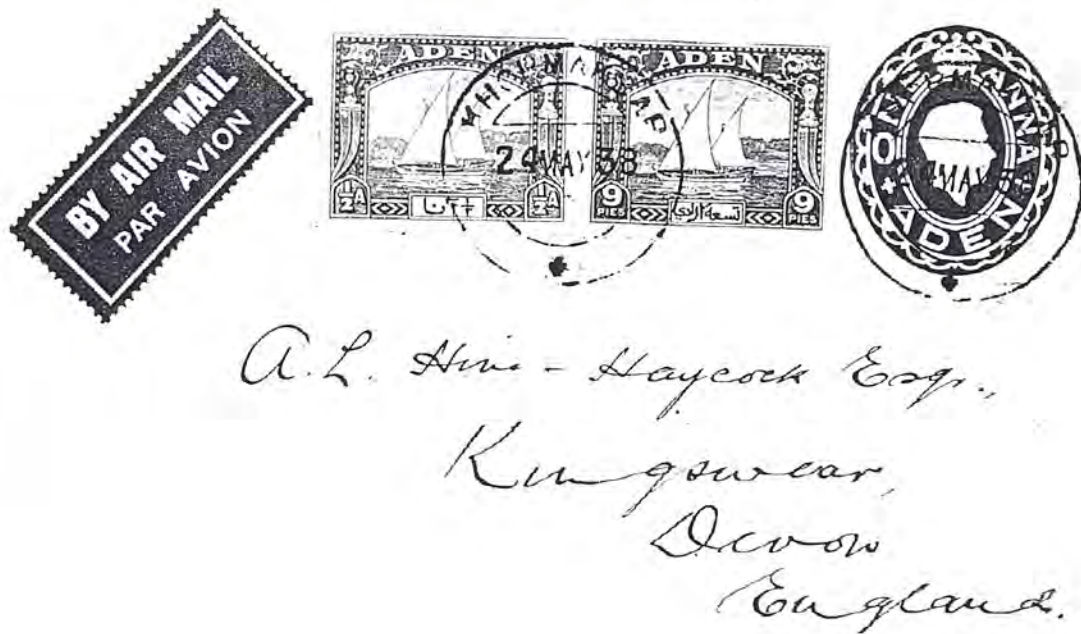 BY AIR MAIL
PAR AVION
ADEN
½A ½A
ADEN
9 PIES 9 PIES
KHORMAKSAR
24 MAY 38
ANNA
ADEN
A. L. Hine-Haycock Esqr.,
Kingswear,
Devon
England.